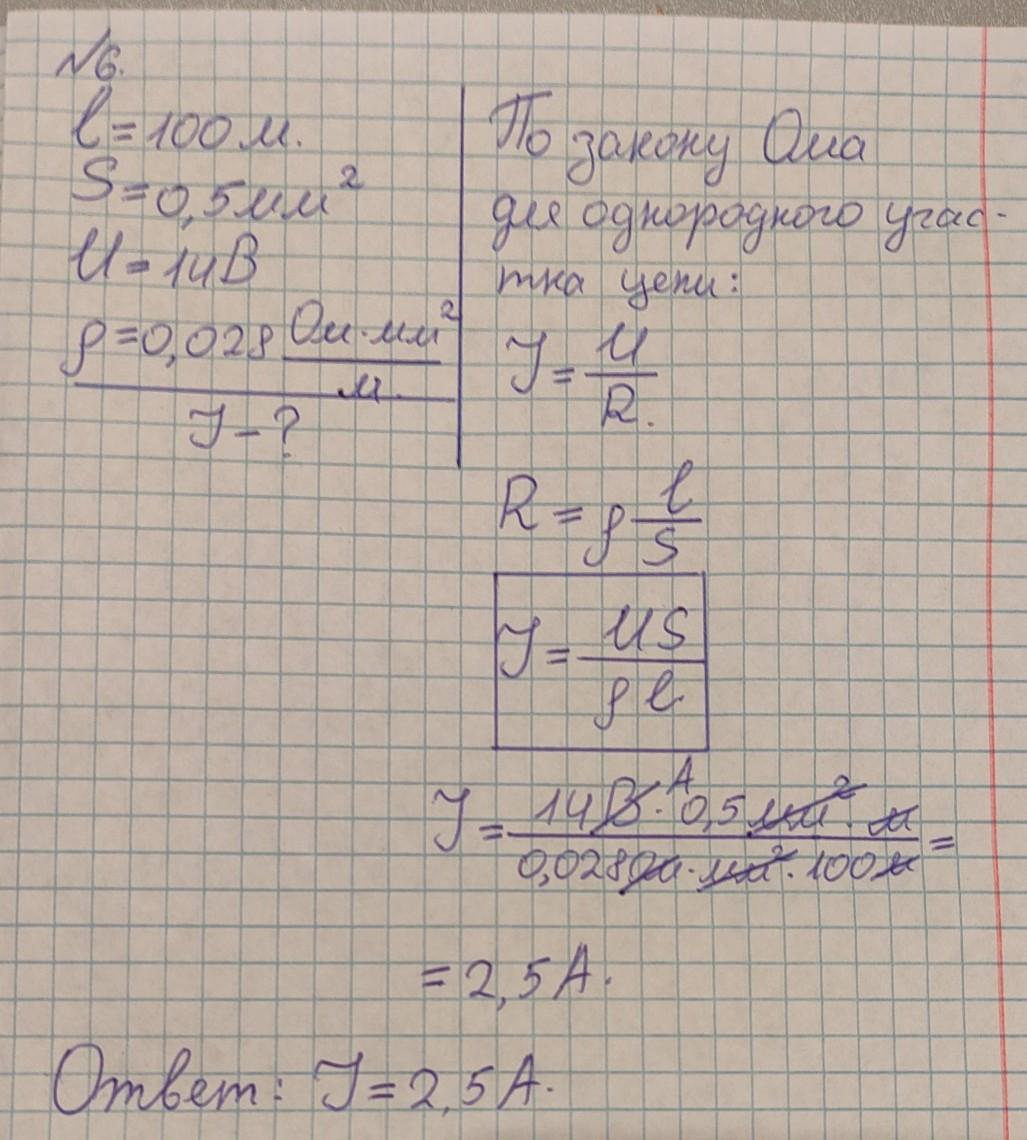 №6.
l=100м.
S=0,5мм²
U=14В
ρ=0,028 Ом·мм²/м.
J-?
По закону Ома
для однородного учас-
тка цепи:
J=U/R.
R=ρ l/S
J=US/ρl
J=14В·А 0,5мм²·м/0,028Ом·мм²·100м=
=2,5А.
Ответ: J=2,5А.